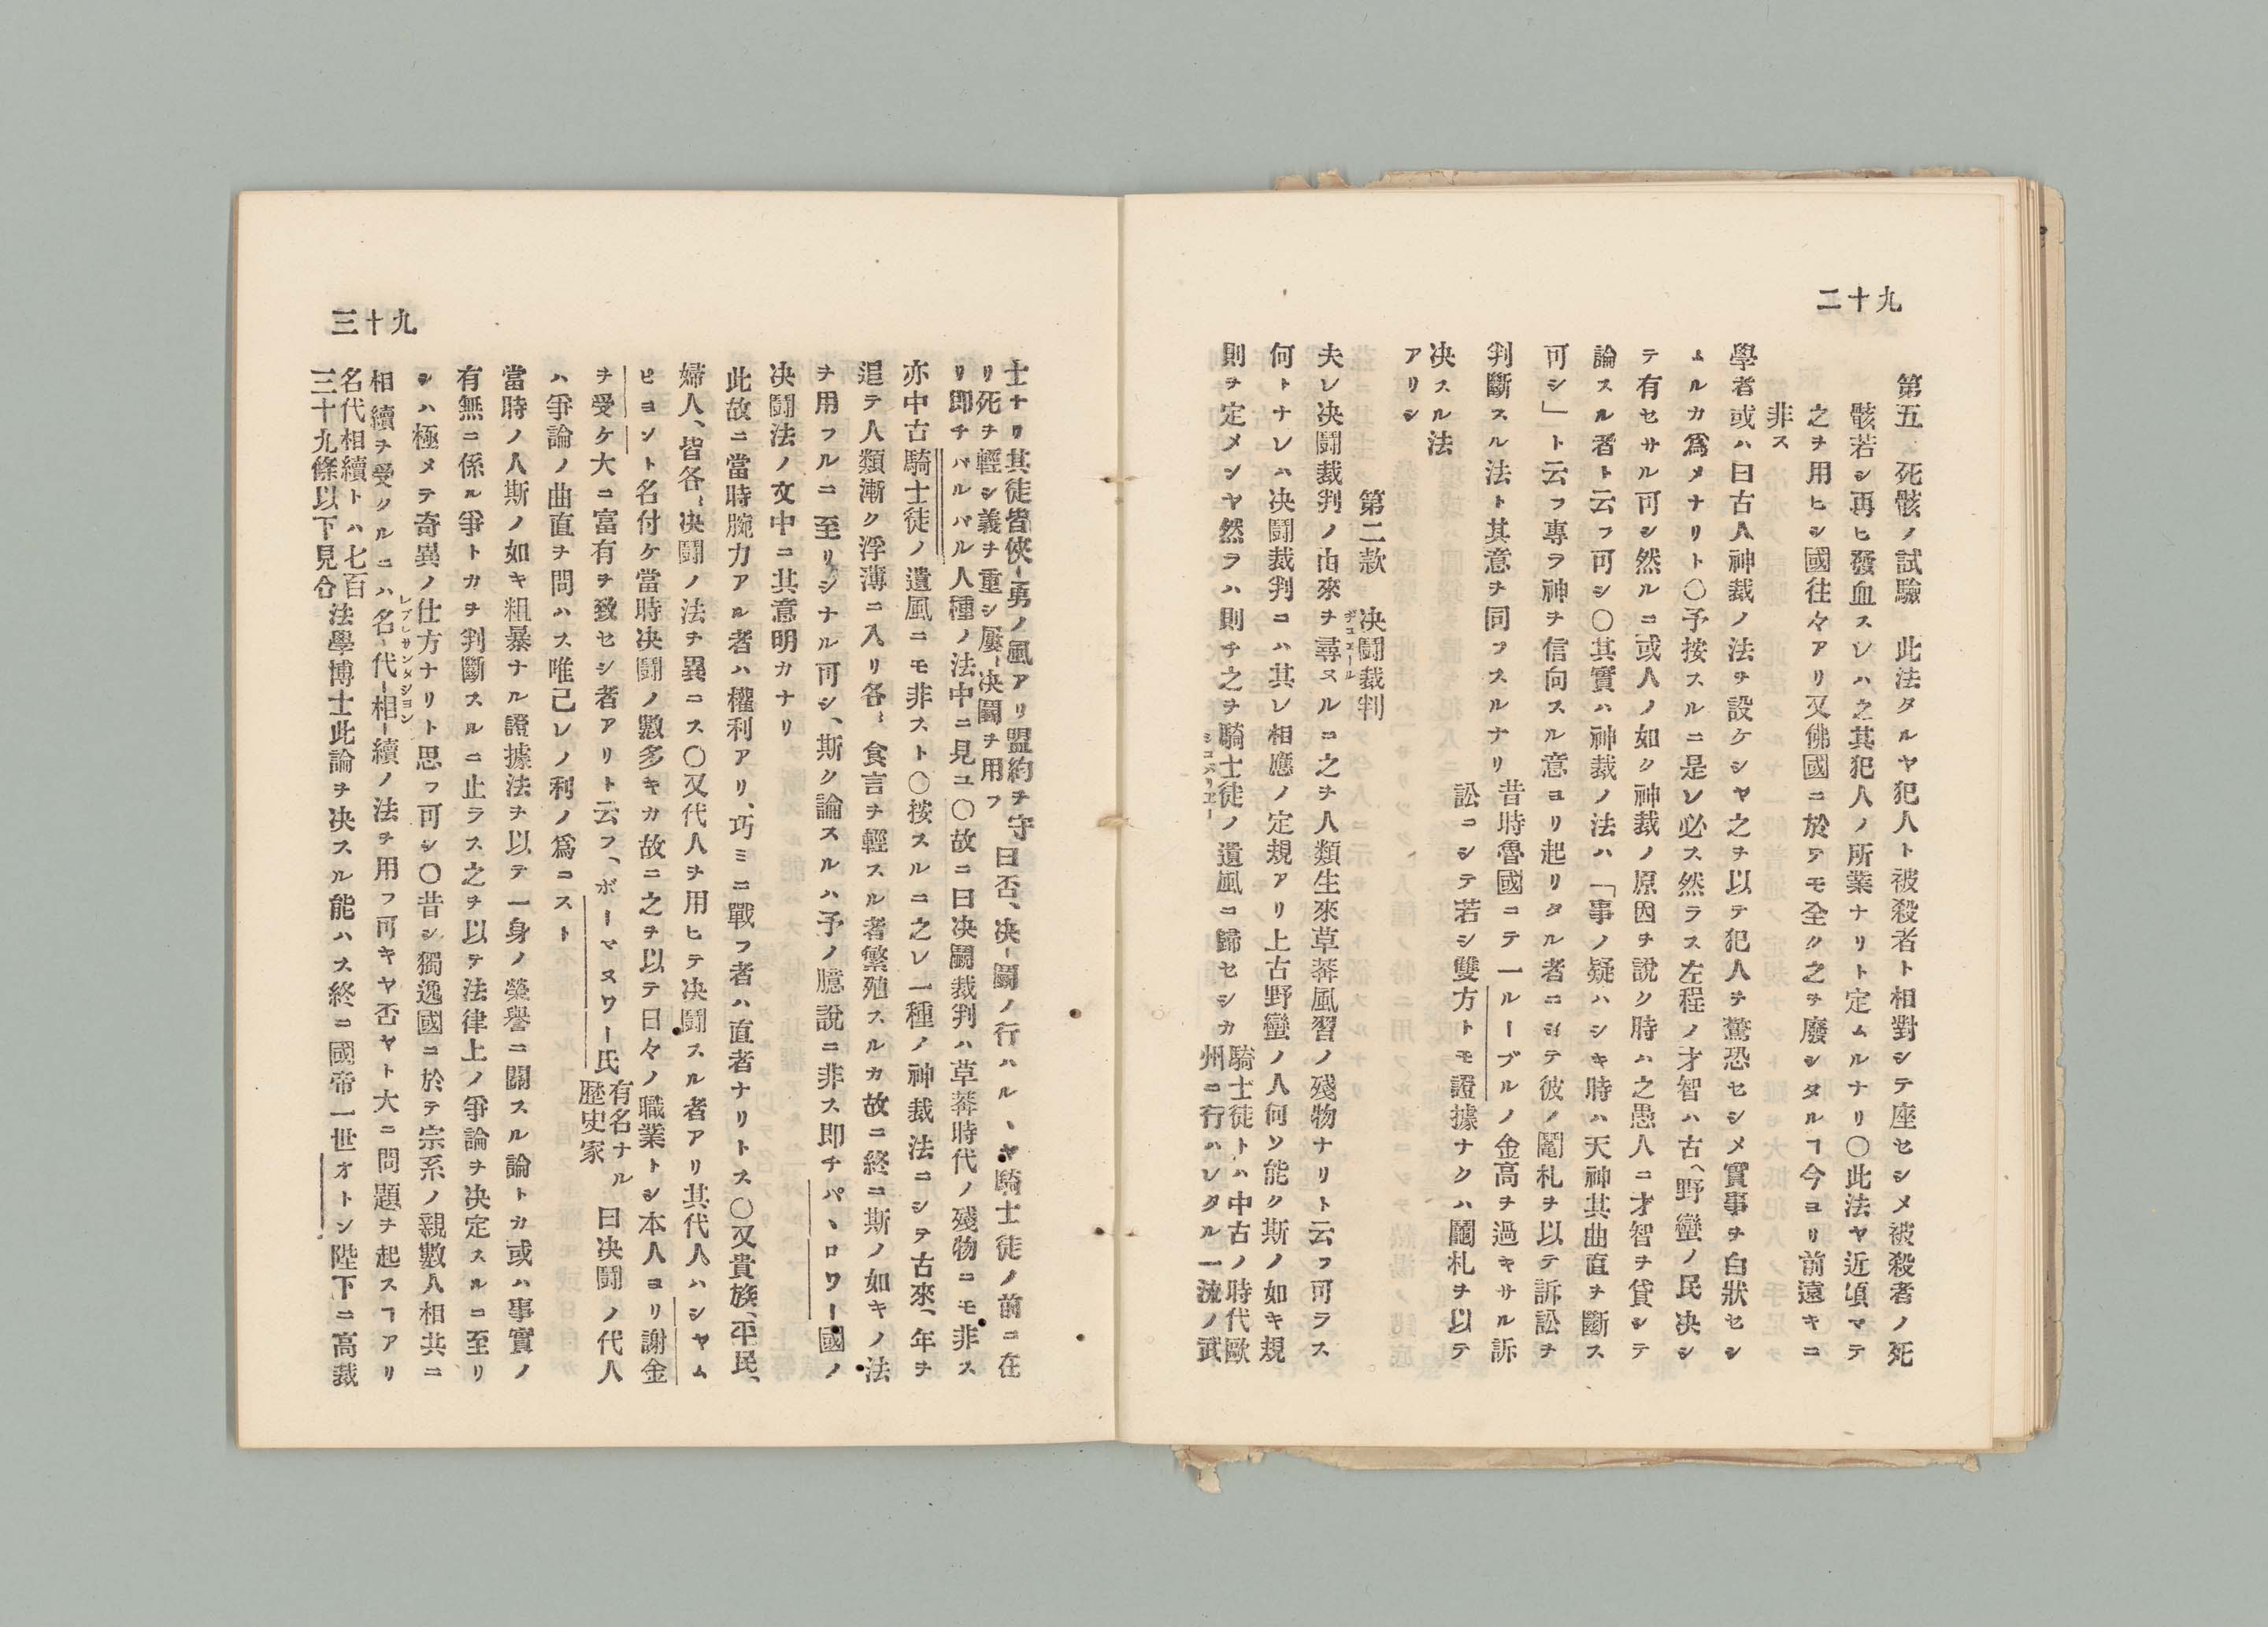 九十二
第五 死骸ノ試驗 此法タルヤ犯人ト被殺者ト相對シテ座セシメ被殺者ノ死
骸若シ再ヒ發血スレハ之其犯人ノ所業ナリト定ムルナリ〇此法ヤ近頃マテ
之ヲ用ヒシ國往々アリ又佛國ニ於テモ全ク之ヲ廢シタルヿ今ヨリ前遠キニ
非ス
學者或ハ曰古人神裁ノ法ヲ設ケシヤ之ヲ以テ犯人ヲ驚恐セシメ實事ヲ白狀セシ
ムルカ爲メナリト〇予按スルニ是レ必ス然ラス左程ノ才智ハ古ヘ野蠻ノ民决シ
テ有セサル可シ然ルニ或人ノ如ク神裁ノ原因ヲ說ク時ハ之愚人ニ才智ヲ貸シテ
論スル者ト云フ可シ〇其實ハ神裁ノ法ハ「事ノ疑ハシキ時ハ天神其曲直ヲ斷ス
可シ」ト云フ專ラ神ヲ信向スル意ヨリ起リタル者ニシテ彼ノ鬮札ヲ以テ訴訟ヲ
判斷スル法ト其意ヲ同フスルナリ 昔時魯國ニテ一ルーブルノ金高ヲ過キサル訴
訟ニシテ若シ雙方トモ證據ナクハ鬮札ヲ以テ
决スル法
アリシ
第二款 决鬪裁判
デユエール
夫レ决鬪裁判ノ由來ヲ尋ヌルニ之ヲ人類生來草莽風習ノ殘物ナリト云フ可ラス
何トナレハ决鬪裁判ニハ其レ相應ノ定規アリ上古野蠻ノ人何ソ能ク斯ノ如キ規
則ヲ定メンヤ然ラハ則チ之ヲ騎士徒ノ遺風ニ歸セシカ 騎士徒トハ中古ノ時代歐
州ニ行ハレタル一流ノ武
九十三
士ナリ其徒皆俠勇ノ風アリ盟約ヲ守
リ死ヲ輕シ義ヲ重シ屢决鬪ヲ用フ 曰否、决鬪ノ行ハル、ヤ騎士徒ノ前ニ在
リ即チバルバル人種ノ法中ニ見ユ〇故ニ曰决鬪裁判ハ草莽時代ノ殘物ニモ非ス
亦中古騎士徒ノ遺風ニモ非スト〇按スルニ之レ一種ノ神裁法ニシテ古來、年ヲ
追テ人類漸ク浮薄ニ入リ各食言ヲ輕スル者繁殖スルカ故ニ終ニ斯ノ如キノ法
ヲ用フルニ至リシナル可シ、斯ク論スルハ予ノ臆說ニ非ス即チバ、ロワー國ノ
决鬪法ノ文中ニ其意明カナリ
此故ニ當時腕力アル者ハ權利アリ、巧ミニ戰フ者ハ直者ナリトス〇又貴族、平民、
婦人、皆各决鬪ノ法ヲ異ニス〇又代人ヲ用ヒテ决鬪スル者アリ其代人ハシヤム
ピヨント名付ケ當時决鬪ノ數多キカ故ニ之ヲ以テ日々ノ職業トシ本人ヨリ謝金
ヲ受ケ大ニ富有ヲ致セシ者アリト云フ、ボーマヌワー氏 有名ナル
歷史家 曰决鬪ノ代人
ハ爭論ノ曲直ヲ問ハス唯己レノ利ノ爲ニスト
當時ノ人斯ノ如キ粗暴ナル證據法ヲ以テ一身ノ榮譽ニ關スル論トカ或ハ事實ノ
有無ニ係ル爭トカヲ判斷スルニ止ラス之ヲ以テ法律上ノ爭論ヲ决定スルニ至リ
シハ極メテ奇異ノ仕方ナリト思フ可シ〇昔シ獨逸國ニ於テ宗系ノ親數人相共ニ
相續ヲ受クルニハ名代相續ノ法ヲ用フ可キヤ否ヤト大ニ問題ヲ起スヿアリ
名代相續トハ七百
三十九條以下見合 法學博士此論ヲ决スル能ハス終ニ國帝一世オトン陛下ニ高裁